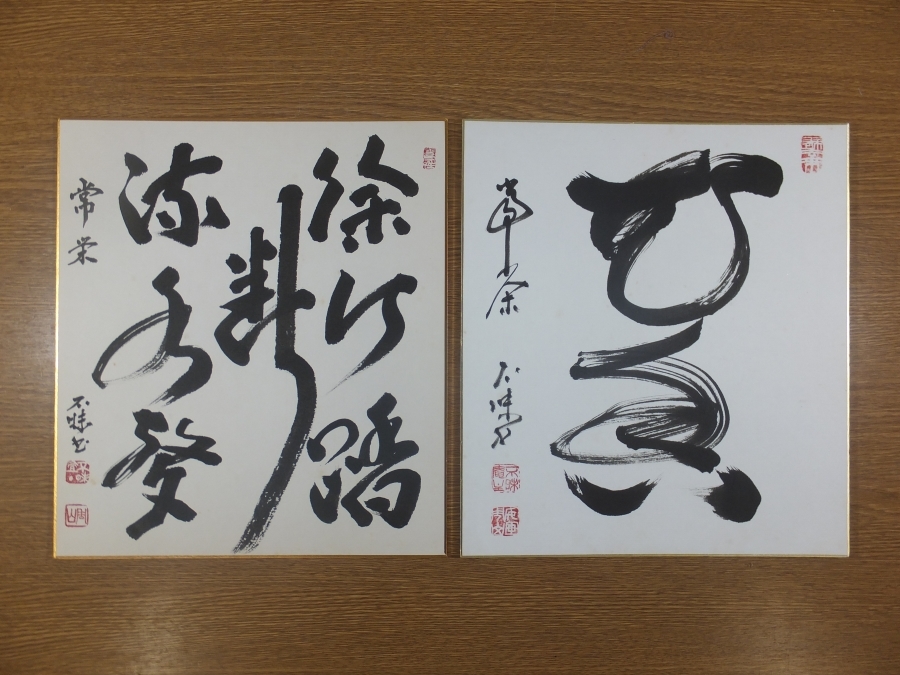 徐行踏
断
流水聲
常栄
不昧書
常栄
不昧書